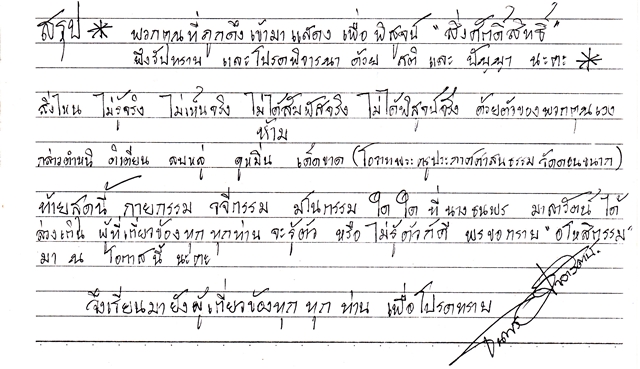 สรุป * พวกคุณที่ถูกดึงเข้ามาแสดง เพื่อ พิสูจน์ "สิ่งศักดิ์สิทธิ์"
พึงรับทราบ และโปรดพิจารณา ด้วย สติ และ ปัญญา นะคะ *
สิ่งไหน ไม่รู้จริง ไม่เห็นจริง ไม่ได้สัมผัสจริง ไม่ได้พิสูจน์จริง ด้วยตัวของพวกคุณเอง
ห้าม
กล่าวตำหนิ ติเตียน ลบหลู่ ดูหมิ่น เด็ดขาด (โอวาทพระครูประกาศศาสนธรรม วัดดอนขนาก)
ท้ายสุดนี้ กายกรรม วจีกรรม มโนกรรม ใด ใด ที่ นาง ธนพร มาลาวัตน์ ได้
ล่วงเกิน ผู้ที่เกี่ยวข้องทุก ทุกท่าน จะรู้ตัว หรือ ไม่รู้ตัวก็ดี พรขอกราบ "อโหสิกรรม"
มา ณ โอกาสนี้ นะคะ
จึงเรียนมายังผู้เกี่ยวข้องทุก ทุก ท่าน เพื่อโปรดทราบ